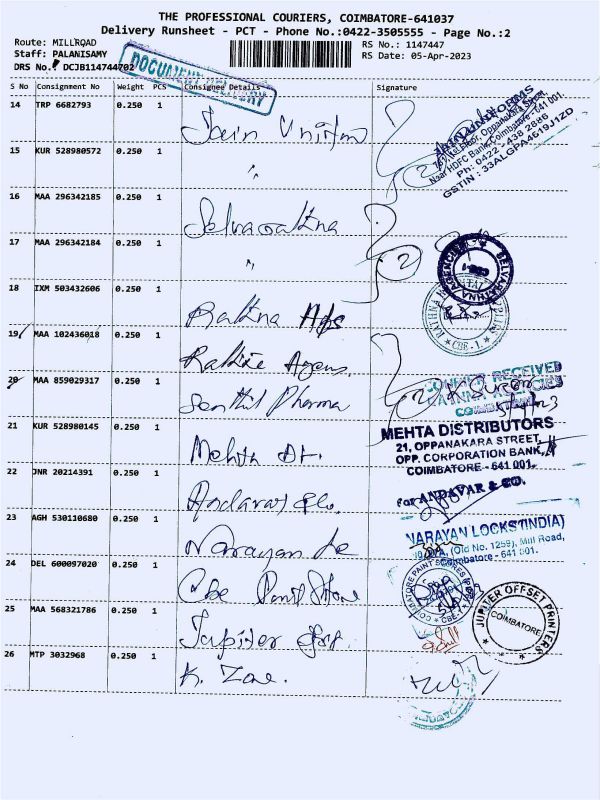 THE PROFESSIONAL COURIERS, COIMBATORE-641037
Delivery Runsheet - PCT - Phone No.:0422-3505555 - Page No.:2
Route: MILLROAD
RS No.: 1147447
Staff: PALANISAMY
RS Date: 05-Apr-2023
DRS No.: DCJB114744702
DOCUMENT DELIVERY
S No Consignment No Weight PCS Consignee Details Signature
14 TRP 6682793 0.250 1 Jain Uniform
15 KUR 528980572 0.250 1 "
16 MAA 296342185 0.250 1 Selvarathna
17 MAA 296342184 0.250 1 "
18 IXM 503432606 0.250 1 Rathna Ags
19 MAA 102436018 0.250 1
20 MAA 859029317 0.250 1 Senthil Pharma
21 KUR 528980145 0.250 1 Mehta Dt.
22 JNR 20214391 0.250 1 Andavar &Co.
23 AGH 530110680 0.250 1 Narayan Lo
24 DEL 600097020 0.250 1 Cbe Paint Store
25 MAA 568321786 0.250 1 Jupiter
26 MTP 3032968 0.250 1 K.
JAIN UNIFORMS
Oppanakara Street,
Near HDFC Bank, Coimbatore - 641 001.
Ph: 0422 - 438 2886
GSTIN : 33ALGPA4619J1ZD
2
2
SELVARATHNA AGENCIES
CBE - 1
COURIER RECEIVED
AGENCIES
COIMBATORE
2
MEHTA DISTRIBUTORS
21, OPPANAKARA STREET,
OPP. CORPORATION BANK,
COIMBATORE - 641 001.
For ANDAVAR & CO.
NARAYAN LOCKS (INDIA)
(Old No. 1259), Mill Road,
Coimbatore - 641 001.
COIMBATORE PAINT STORES
CBE-1
JUPITER OFFSET PRINTERS
COIMBATORE